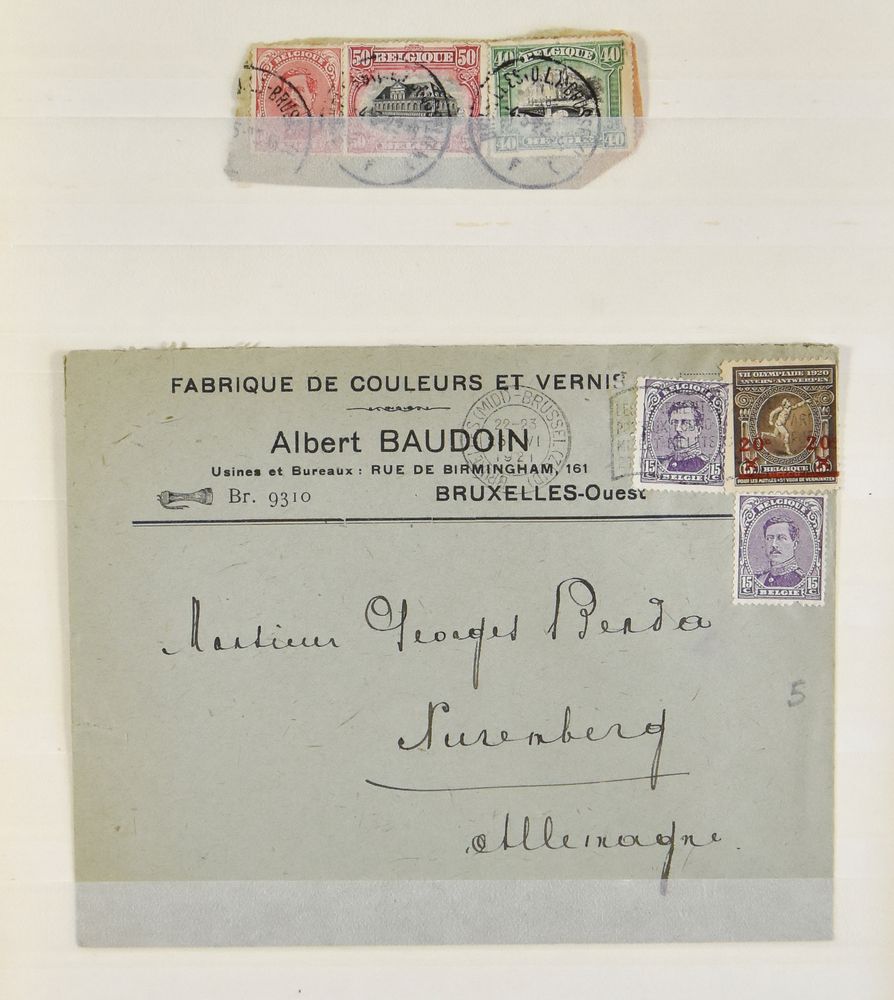 BELGIQUE
50 BELGIQUE 50
40 BELGIQUE 40
BELGIË
40 40
FABRIQUE DE COULEURS ET VERNIS
Albert BAUDOIN
Usines et Bureaux : RUE DE BIRMINGHAM, 161
Br. 9310
BRUXELLES-Ouest
(MIDI)-BRUSSEL (ZUID)
22-23
VI
1921
BELGIQUE
15 15
BELGIË
VII OLYMPIADE 1920
ANVERS-ANTWERPEN
20c 20c
BELGIQUE
POUR LES MUTILÉS • ST VOOR DE VERMINKTEN
BELGIQUE
15 15
BELGIË
Monsieur Georges Benda
Nuremberg
Allemagne.
5